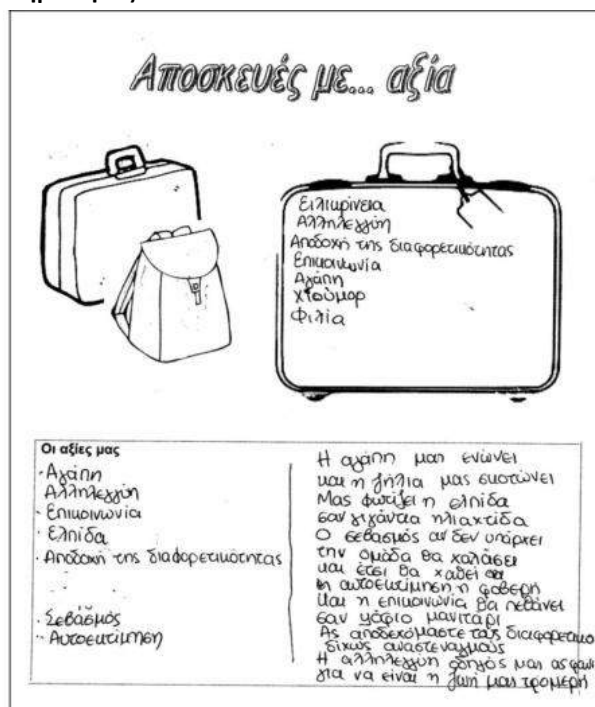 Αποσκευές με... αξία
Ειλικρίνεια
Αλληλεγγύη
Αποδοχή της διαφορετικότητας
Επικοινωνία
Αγάπη
Χιούμορ
Φιλία
Οι αξίες μας
· Αγάπη
Αλληλεγγύη
· Επικοινωνία
· Ελπίδα
· Αποδοχή της διαφορετικότητας
· Σεβασμός
· Αυτοεκτίμηση
Η αγάπη μας ενώνει
και η ζήλια μας σκοτώνει
Μας φωτίζει η ελπίδα
σαν γιγάντια ηλιαχτίδα
Ο σεβασμός αν δεν υπάρχει
την ομάδα θα χαλάσει
και έτσι θα χαθεί
η αυτοεκτίμηση η φοβερή
Και η επικοινωνία θα πεθάνει
σαν μανιτάρι
Ας αποδεχόμαστε τους
δίχως αναστεναγμούς
Η αλληλεγγύη οδηγός μας ας
για να είναι η ζωή μας τρομερή